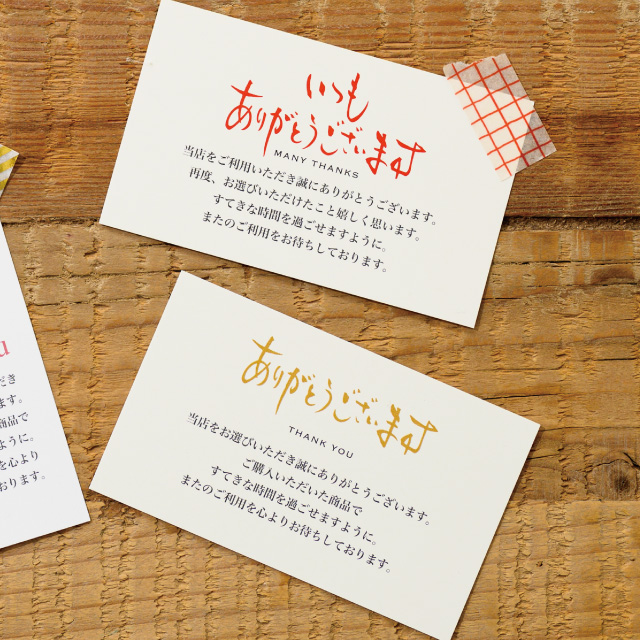 いつも
ありがとうございます
MANY THANKS
当店をご利用いただき誠にありがとうございます。
再度、お選びいただけたこと嬉しく思います。
すてきな時間を過ごせますように。
またのご利用をお待ちしております。
ありがとうございます
THANK YOU
当店をお選びいただき誠にありがとうございます。
ご購入いただいた商品で
すてきな時間を過ごせますように。
またのご利用を心よりお待ちしております。
u
だき
ます。
商品で
ように。
を心より
おります。